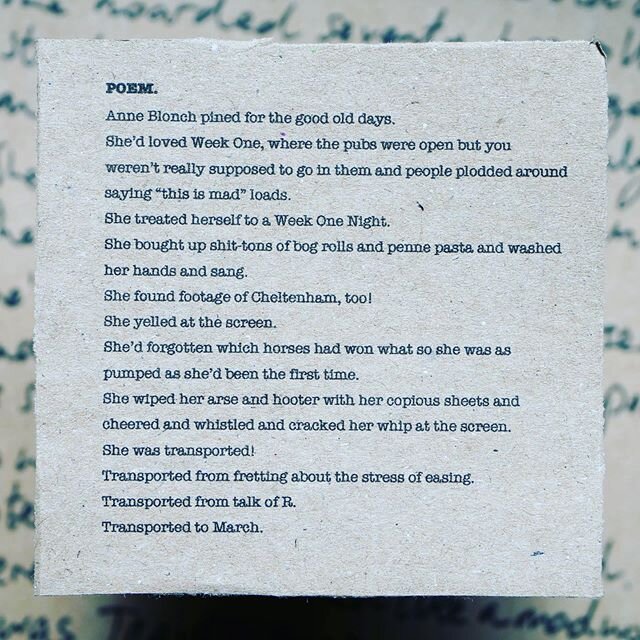 the hoarded seventy
POEM.
Anne Blonch pined for the good old days.
She'd loved Week One, where the pubs were open but you
weren't really supposed to go in them and people plodded around
saying "this is mad" loads.
She treated herself to a Week One Night.
She bought up shit-tons of bog rolls and penne pasta and washed
her hands and sang.
She found footage of Cheltenham, too!
She yelled at the screen.
She'd forgotten which horses had won what so she was as
pumped as she'd been the first time.
She wiped her arse and hooter with her copious sheets and
cheered and whistled and cracked her whip at the screen.
She was transported!
Transported from fretting about the stress of easing.
Transported from talk of R.
Transported to March.
was